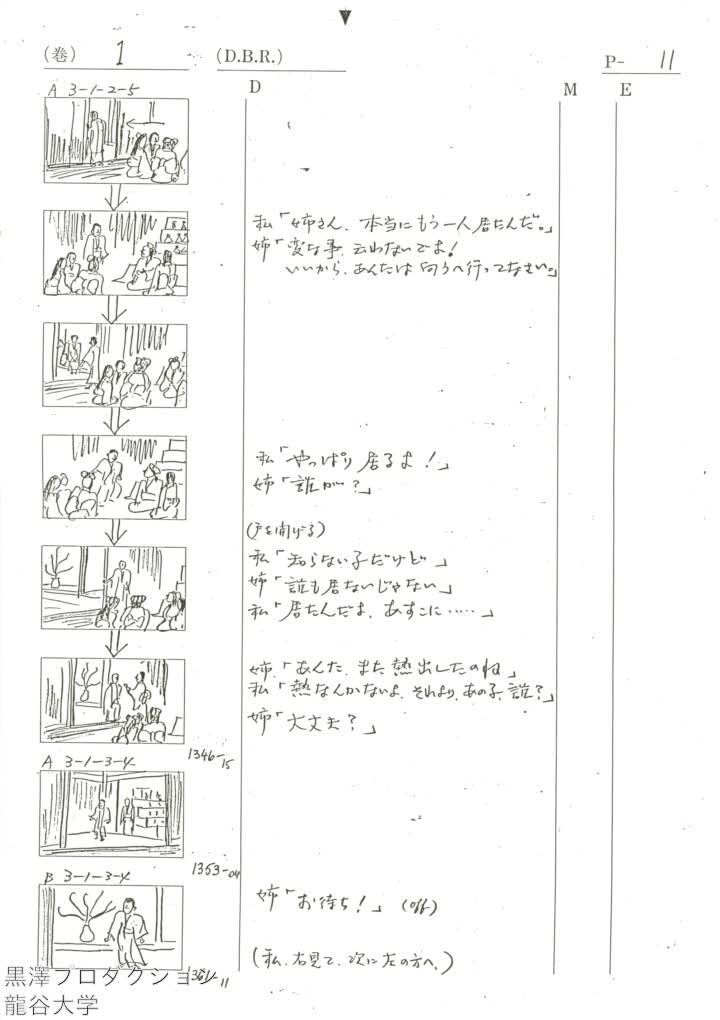 (巻) 1 (D.B.R.) P- 11
D M E
A 3-1-2-5
私「姉さん、本当にもう一人居たんだ。」
姉「変な事、云わないでよ!
いいから、あんたは向うへ行ってなさい。」
私「やっぱり居るよ!」
姉「誰が?」
(戸を開げる)
私「知らない子だけど」
姉「誰も居ないじゃない」
私「居たんだよ、あすこに……」
姉「あんた、また熱出したのね」
私「熱なんかないよ、それより、あの子、誰?」
姉「大丈夫?」
1346-15
A 3-1-3-4
1353-04
B 3-1-3-4
姉「お待ち!」(off)
(私、右見て、次に左の方へ、)
黒澤プロダクション
龍谷大学